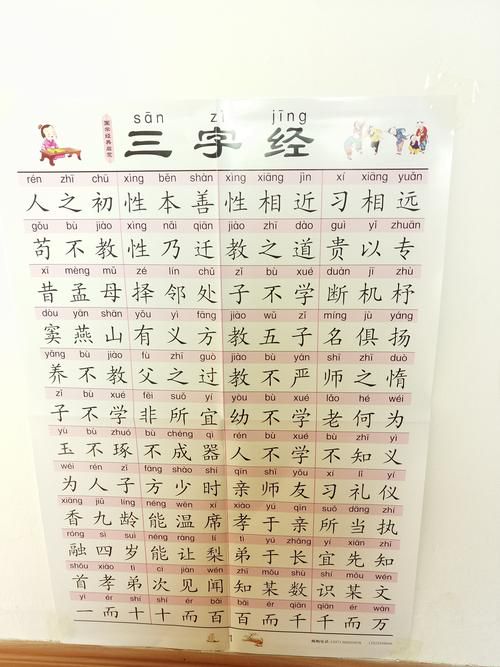 sān zì jīng
国学经典启蒙
三字经
rén zhī chū xìng běn shàn xìng xiāng jìn xí xiāng yuǎn
人之初 性本善 性相近 习相远
gǒu bù jiào xìng nǎi qiān jiào zhī dào guì yǐ zhuān
苟不教 性乃迁 教之道 贵以专
xī mèng mǔ zé lín chǔ zǐ bù xué duàn jī zhù
昔孟母 择邻处 子不学 断机杼
dòu yān shān yǒu yì fāng jiào wǔ zǐ míng jù yáng
窦燕山 有义方 教五子 名俱扬
yǎng bù jiào fù zhī guò jiào bù yán shī zhī duò
养不教 父之过 教不严 师之惰
zǐ bù xué fēi suǒ yí yòu bù xué lǎo hé wéi
子不学 非所宜 幼不学 老何为
yù bù zhuó bù chéng qì rén bù xué bù zhī yì
玉不琢 不成器 人不学 不知义
wéi rén zǐ fāng shào shí qīn shī yǒu xí lǐ yí
为人子 方少时 亲师友 习礼仪
xiāng jiǔ líng néng wēn xí xiào yú qīn suǒ dāng zhí
香九龄 能温席 孝于亲 所当执
róng sì suì néng ràng lí dì yú zhǎng yí xiān zhī
融四岁 能让梨 弟于长 宜先知
shǒu xiào tì cì jiàn wén zhī mǒu shù shí mǒu wén
首孝弟 次见闻 知某数 识某文
yī ér shí shí ér bǎi bǎi ér qiān qiān ér wàn
一而十 十而百 百而千 千而万